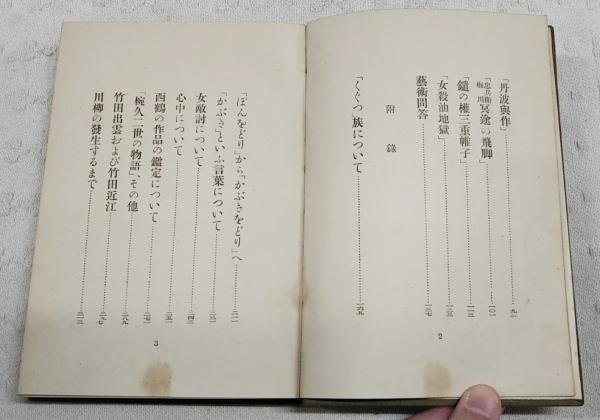 「丹波與作」…………九一
「忠兵衛梅川冥途の飛脚」…………一〇一
「鑓の權三重帷子」…………一一三
「女殺油地獄」…………一二三
藝術問答…………一三七
附錄
「くぐつ」族について…………一六五
2
「ぼんをどり」から「かぶきをどり」へ…………二一一
「かぶき」といふ言葉について…………二三一
女敵討について…………二四三
心中について…………二五一
西鶴の作品の鑑定について…………二七一
「椀久二世の物語」、その他…………二八九
竹田出雲および竹田近江…………二九七
川柳の發生するまで…………三一三
3